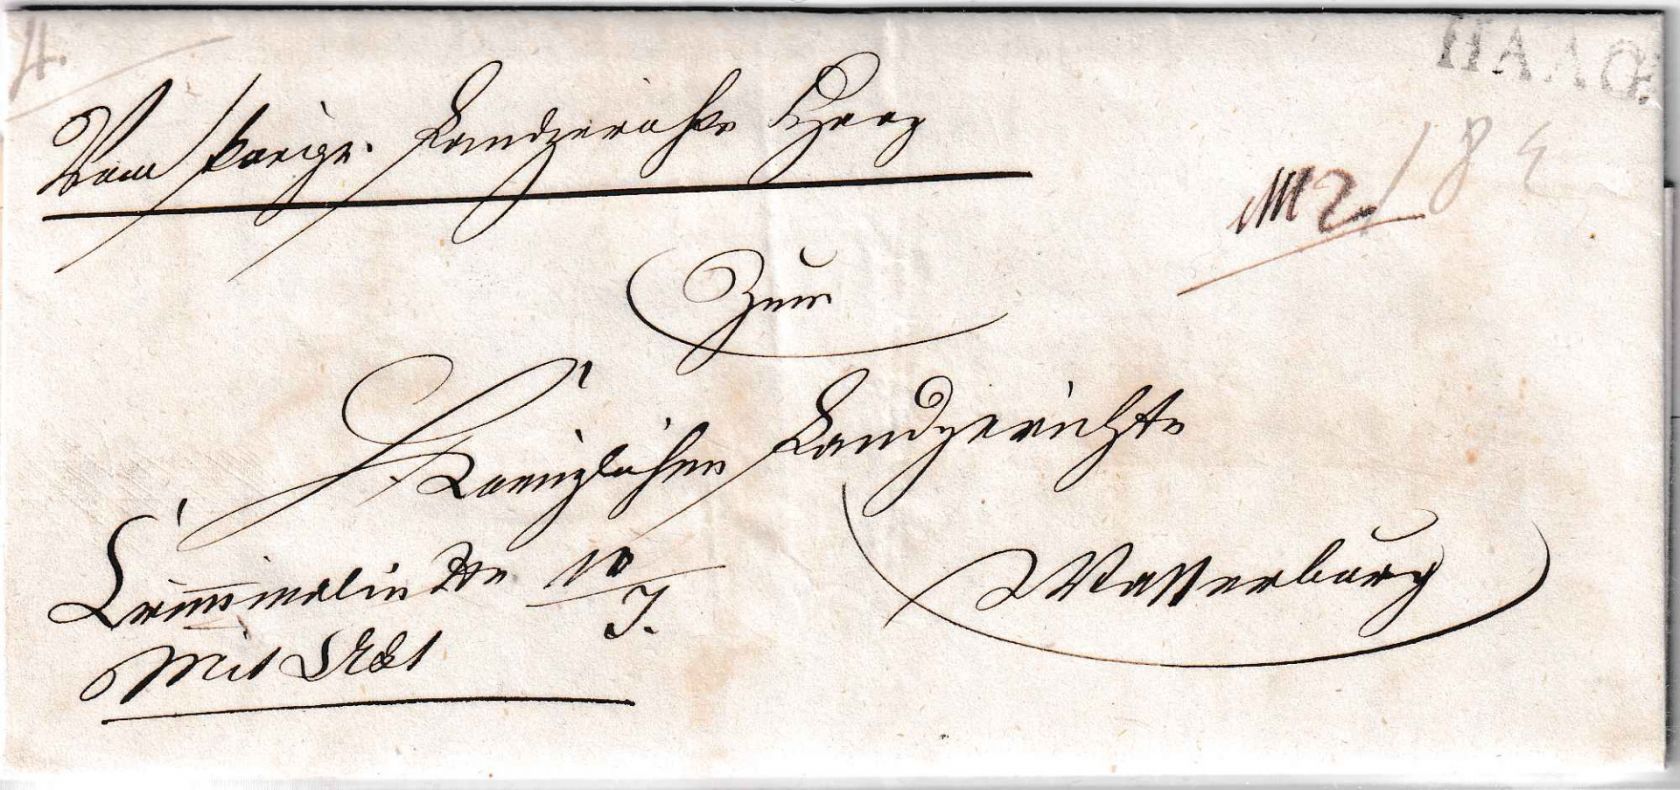 4.
HAAG.
Vom königr. Landgerichte Haag
Zum
Koeniglichen Landgerichte
Wasserburg
Criminalia
Mit Akt